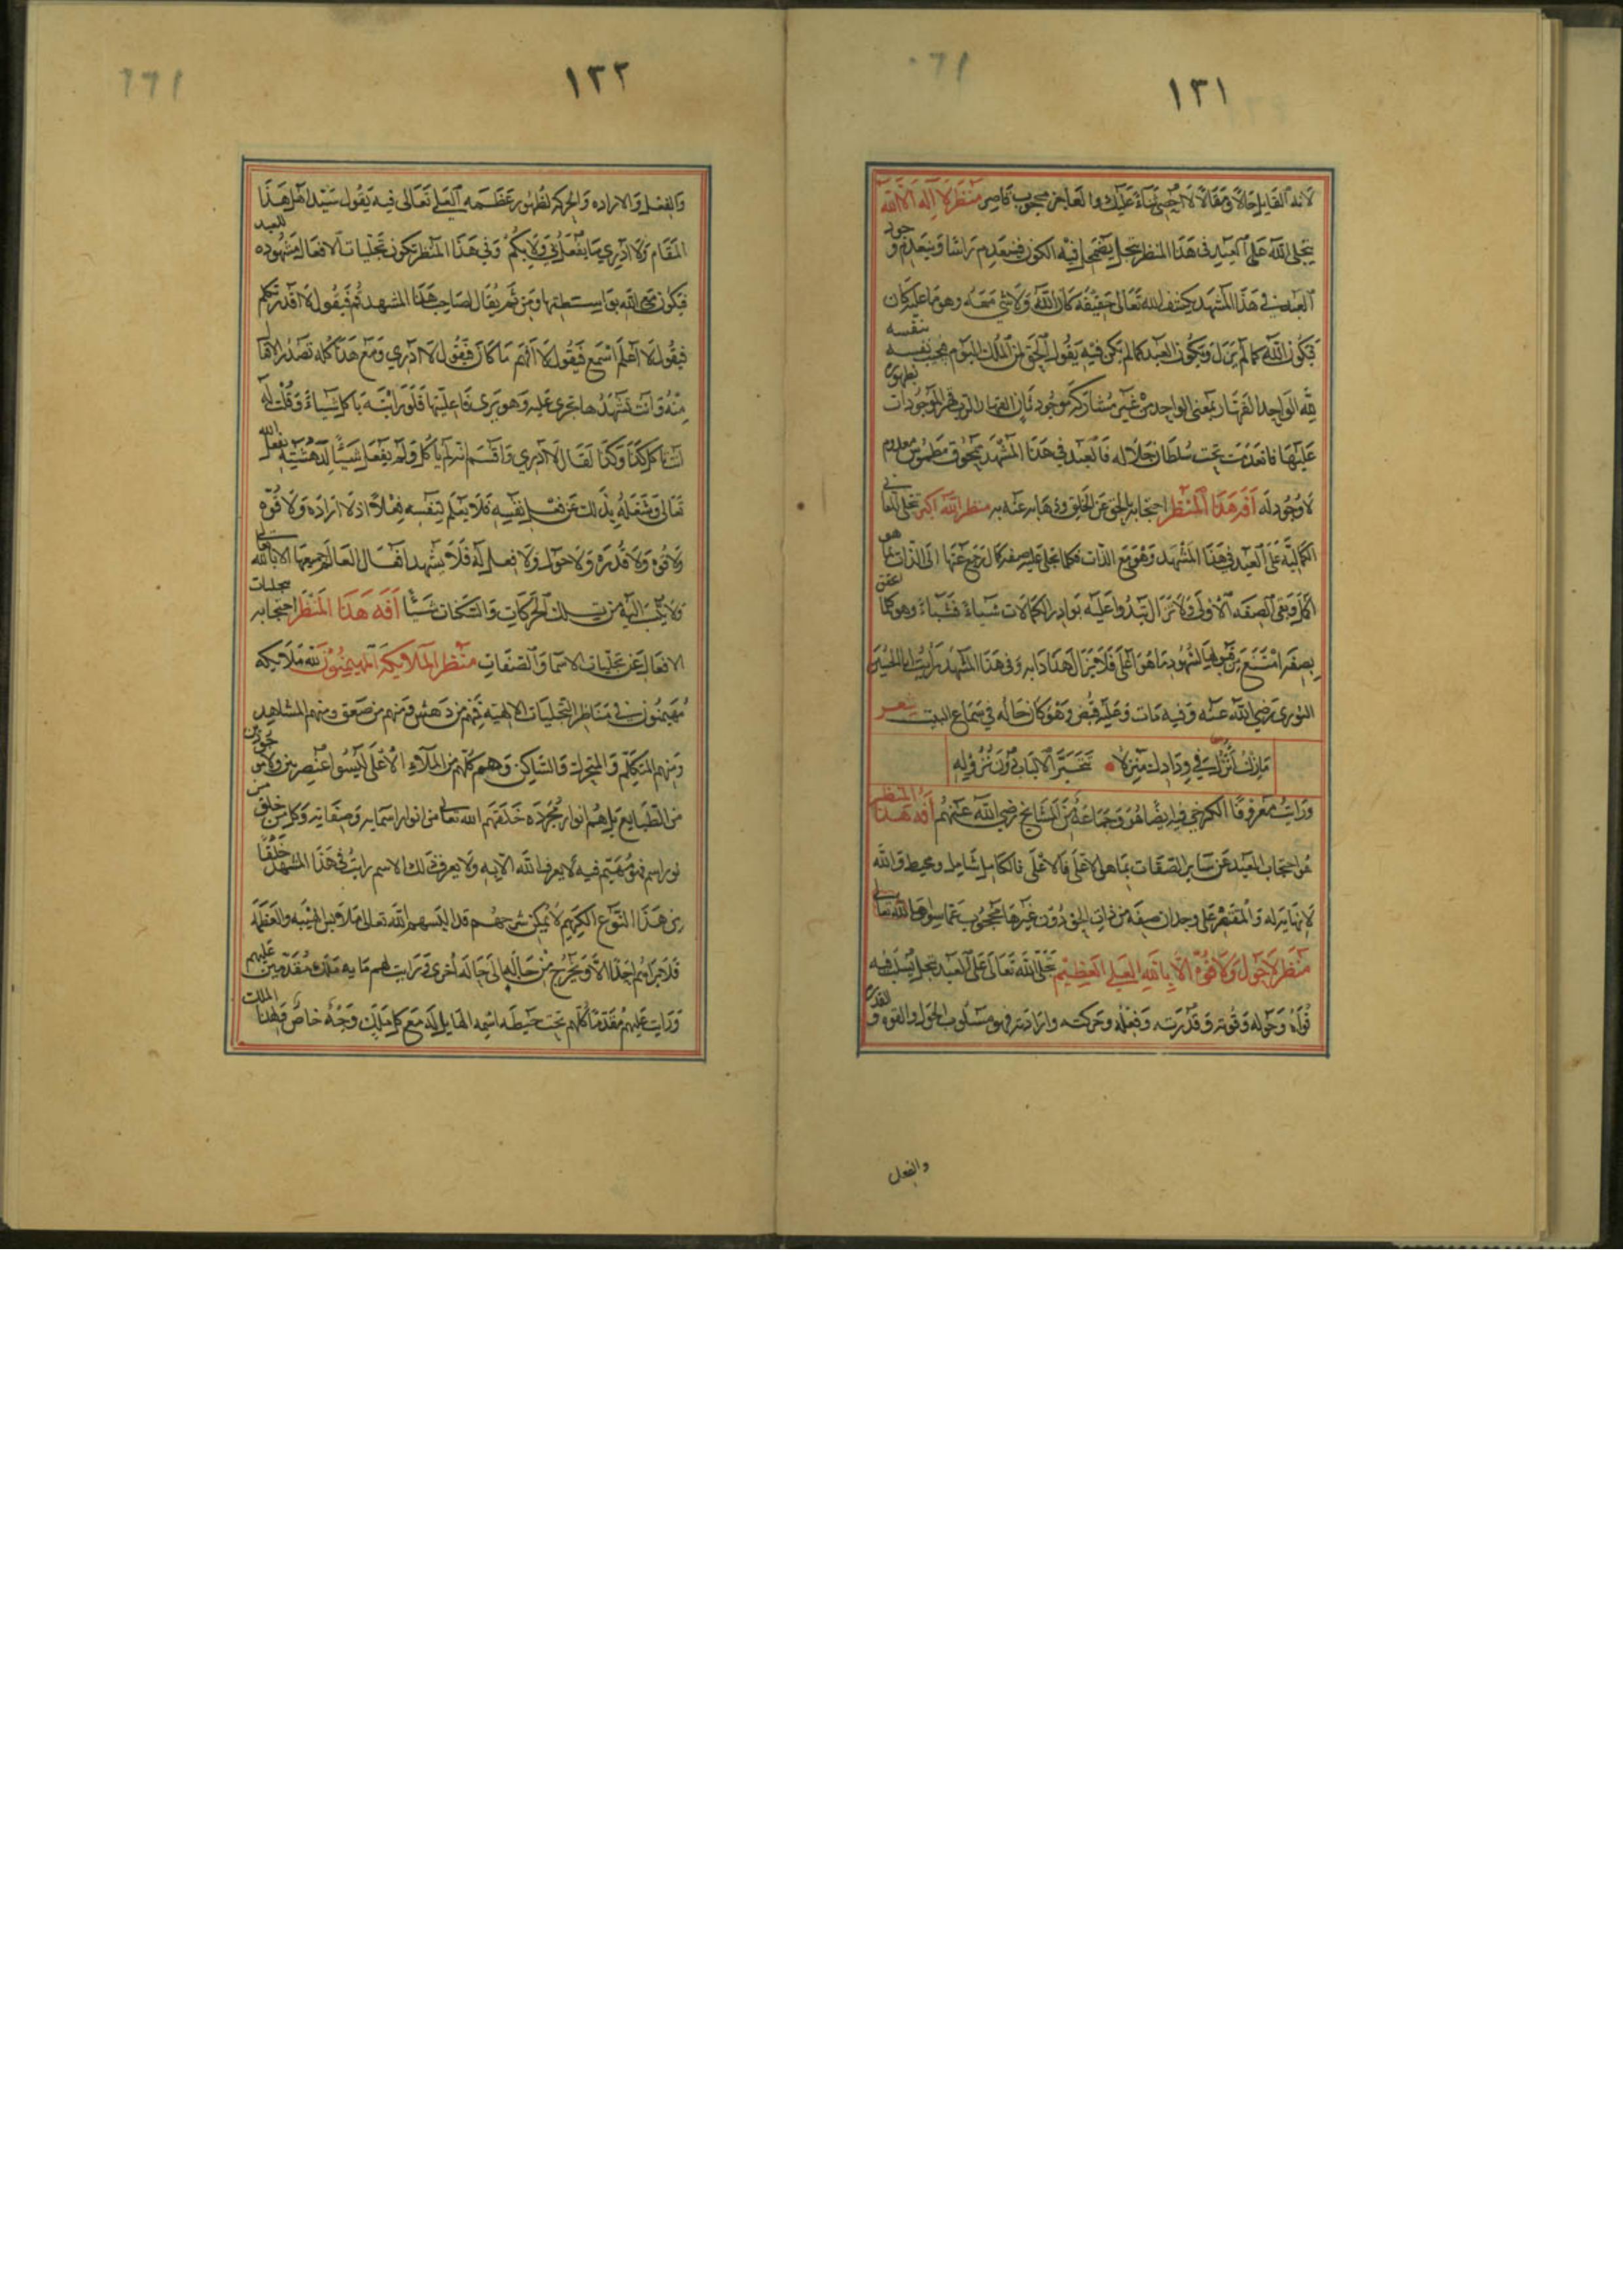 ١٣١
لانه القايل حالا ومقالا لا احصي ثناء عليك والعاجز محجوب قاصر منظر لا اله الا الله
يتجلى الله على العبد في هذا المنظر بتجل يضمحل فيه الكون فينعدم راسا وينعدم وجود
العبد في هذا المشهد يكشف الله تعالى حقيقة كان الله ولا شي معه وهو على ما عليه كان
فيكون الله كما لم يزل ويكون العبد كما لم يكن فيه يقول الحق لمن الملك اليوم بنفسه
لله الواحد القهار بمعنى الواحد من غير مشاركة موجود ثان القهار الذي قهر الموجودات بظهوره
عليها فانعدمت تحت سلطان جلاله فالعبد في هذا المشهد ممحوق مطموس معدوم
لا وجود له آفة هذا المنظر احتجابه بالحق عن الخلق وذهابه عنه به منظر الله اكبر تجلي المعاني
الكمالية على العبد في هذا المشهد وهو مع الذات فكلما تجلى عليه صفة كمال رجع عنها الى الذات بما هو
اكمل وبقي الصفة الاولى ولا تزال تبدو عليه بوادر الكمالات شياء فشياء وهو كلما
بصفة امتنع من شهود ما هو اعلى فلا يزال هذا دابه وفي هذا المشهد رايت ابا الحسين
النوري رضي الله عنه وفيه مات وعليه قبض وهو كان حاله في سماع البيت شعر
ما زلت انزل في ودادك منزلا تتحير الالباب دون نزوله
ورايت معروفا الكرخي فيه ايضا هو وجماعة من المشايخ رضي الله عنهم آفة هذا المنظر
هو احتجاب العبد عن ساير الصفات بما هو الاعلى فالاعلى فالكامل شامل ومحيط والله
لا نهاية له والمقتصر على وجدان صفة من ذات الحق دون غيرها محجوب عما سواها الله تعالى
منظر لا حول ولا قوة الا بالله العلي العظيم تجلى الله تعالى على العبد بتجل يسلب فيه
قواه وحوله وقوته وقدرته وفعله وحركته وارادته فهو مسلوب الحول والقوه والقدره
والفعل
١٣٢
والفعل والاراده والحركه لظهور عظمه العلي تعالى فيه يقول سيد اهل هذا
المقام ولا ادري ما يفعل بي ولا بكم وفي هذا المنظر تكون تجليات الافعال مشهوده للعبد
فيكون مع الله بواسطتها ومن ثم يقال لصاحب هذا المشهد قم فيقول لا اقدر تكلم
فيقول لا اعلم اسمع فيقول لا افهم ما كان فيقول لا ادري ومع هذا كله تصدر الافعال
منه وانت تشهدها تجري عليه وهو يرى فاعليتها فلو رايته ياكل شياء وقلت له
انت تاكل كذا وكذا لقال لا ادري واقسم انه لم ياكل ولم يفعل شيئا لدهشته بفعل الله
تعالى وشغله بذلك عن فعل نفسه فلا يعلم لنفسه فعلا اذ لا اراده ولا قوه
ولا قوه ولا قدره ولا حول ولا فعل له فلا يشهد افعال العالم جميعها الا بالله تعالى
ولا ينسب اليه من تلك الحركات والسكنات شيئا آفة هذا المنظر احتجابه بتجليات
الافعال عن تجليات الاسما والصفات منظر الملايكه المهيمنون لله ملايكه
مهيمنون في مناظر التجليات الالهيه فمنهم من دهش ومنهم من صعق ومنهم المشاهد
ومنهم المتكلم والمتحرك والساكن وهم كلهم من الملاء الاعلى ليسوا عنصريين ولا مخلوقين
من الطبايع بل هم انوار مجرده خلقهم الله تعالى من انوار اسمايه وصفاته وكل من خلق من
نور اسم فهو مهيم فيه لا يعرف الله الا به ولا يعرف ذلك الاسم رايت في هذا المشهد خلقا
من هذا النوع الكريم لا يمكن شرحهم قد البسهم الله تعالى ملابس الهيبه والعظمه
فلا يراهم احد الا ويخرج من حاله الى حاله اخرى ورايت لهم مايه ملك مقدمين عليهم
ورايت عليهم مقدما كلهم تحت حيطه اسمه القايل له مع كل ملك وجه خاص فلهذا الملك